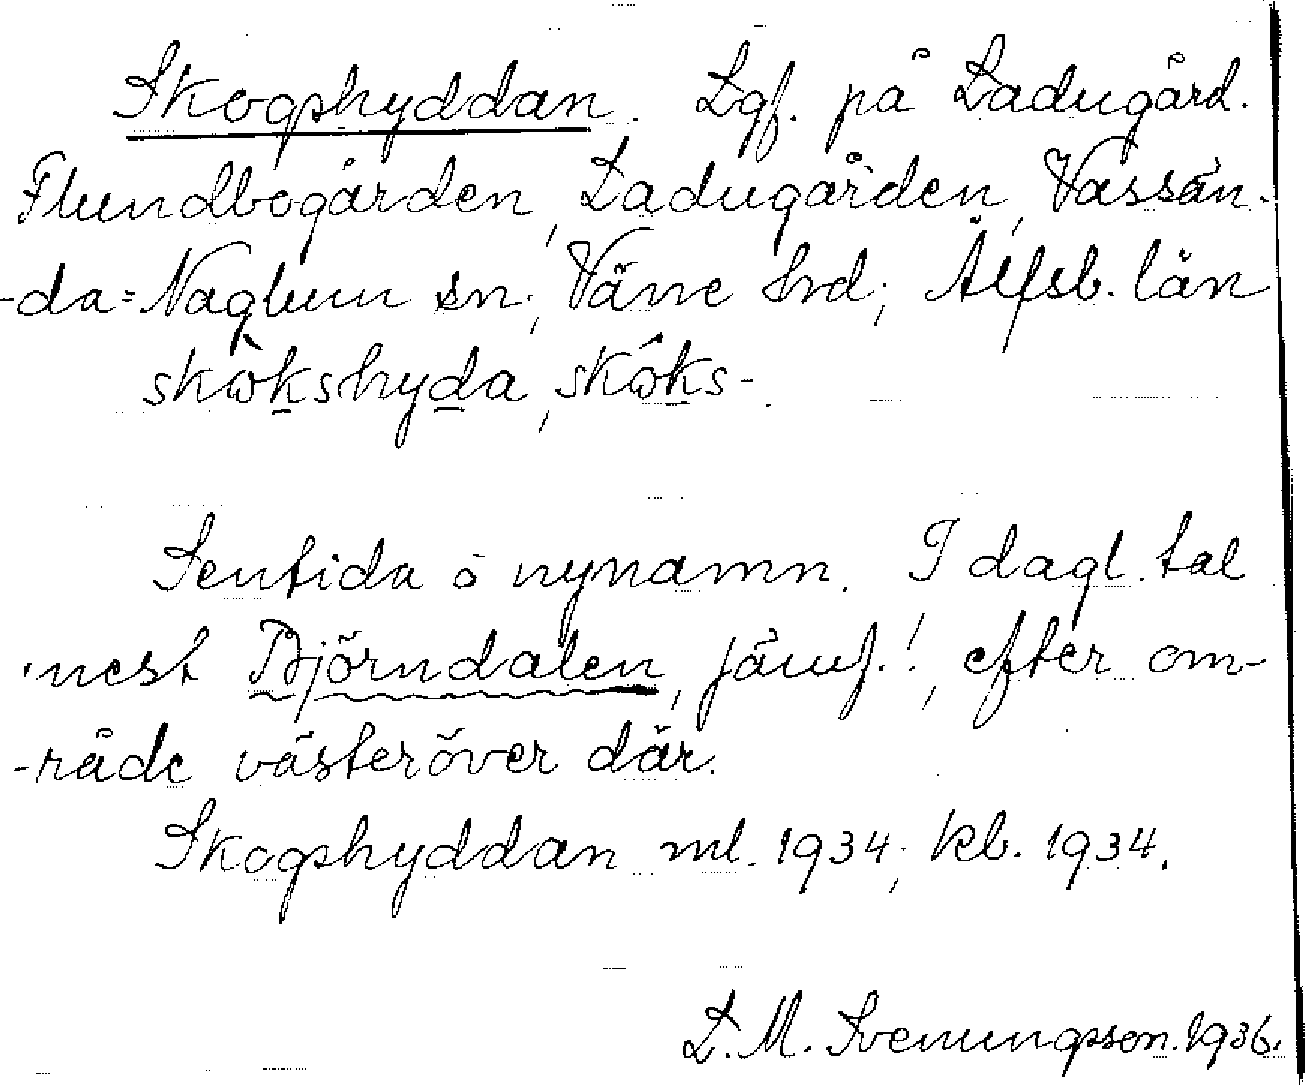 Skogshyddan. Lgf. på Ladugård.
Flundbogården, Ladugården, Vassän-
-da=Naglum sn; Väne hrd; Älfsb. län
skògkshyda, skóks-.
Sentida o nynamn. I dagl. tal
mest Björndalen, jämf.!, efter om-
-råde västeröver där.
Skogshyddan ml. 1934; kb. 1934.
L. M. Svenungsson. 1936.